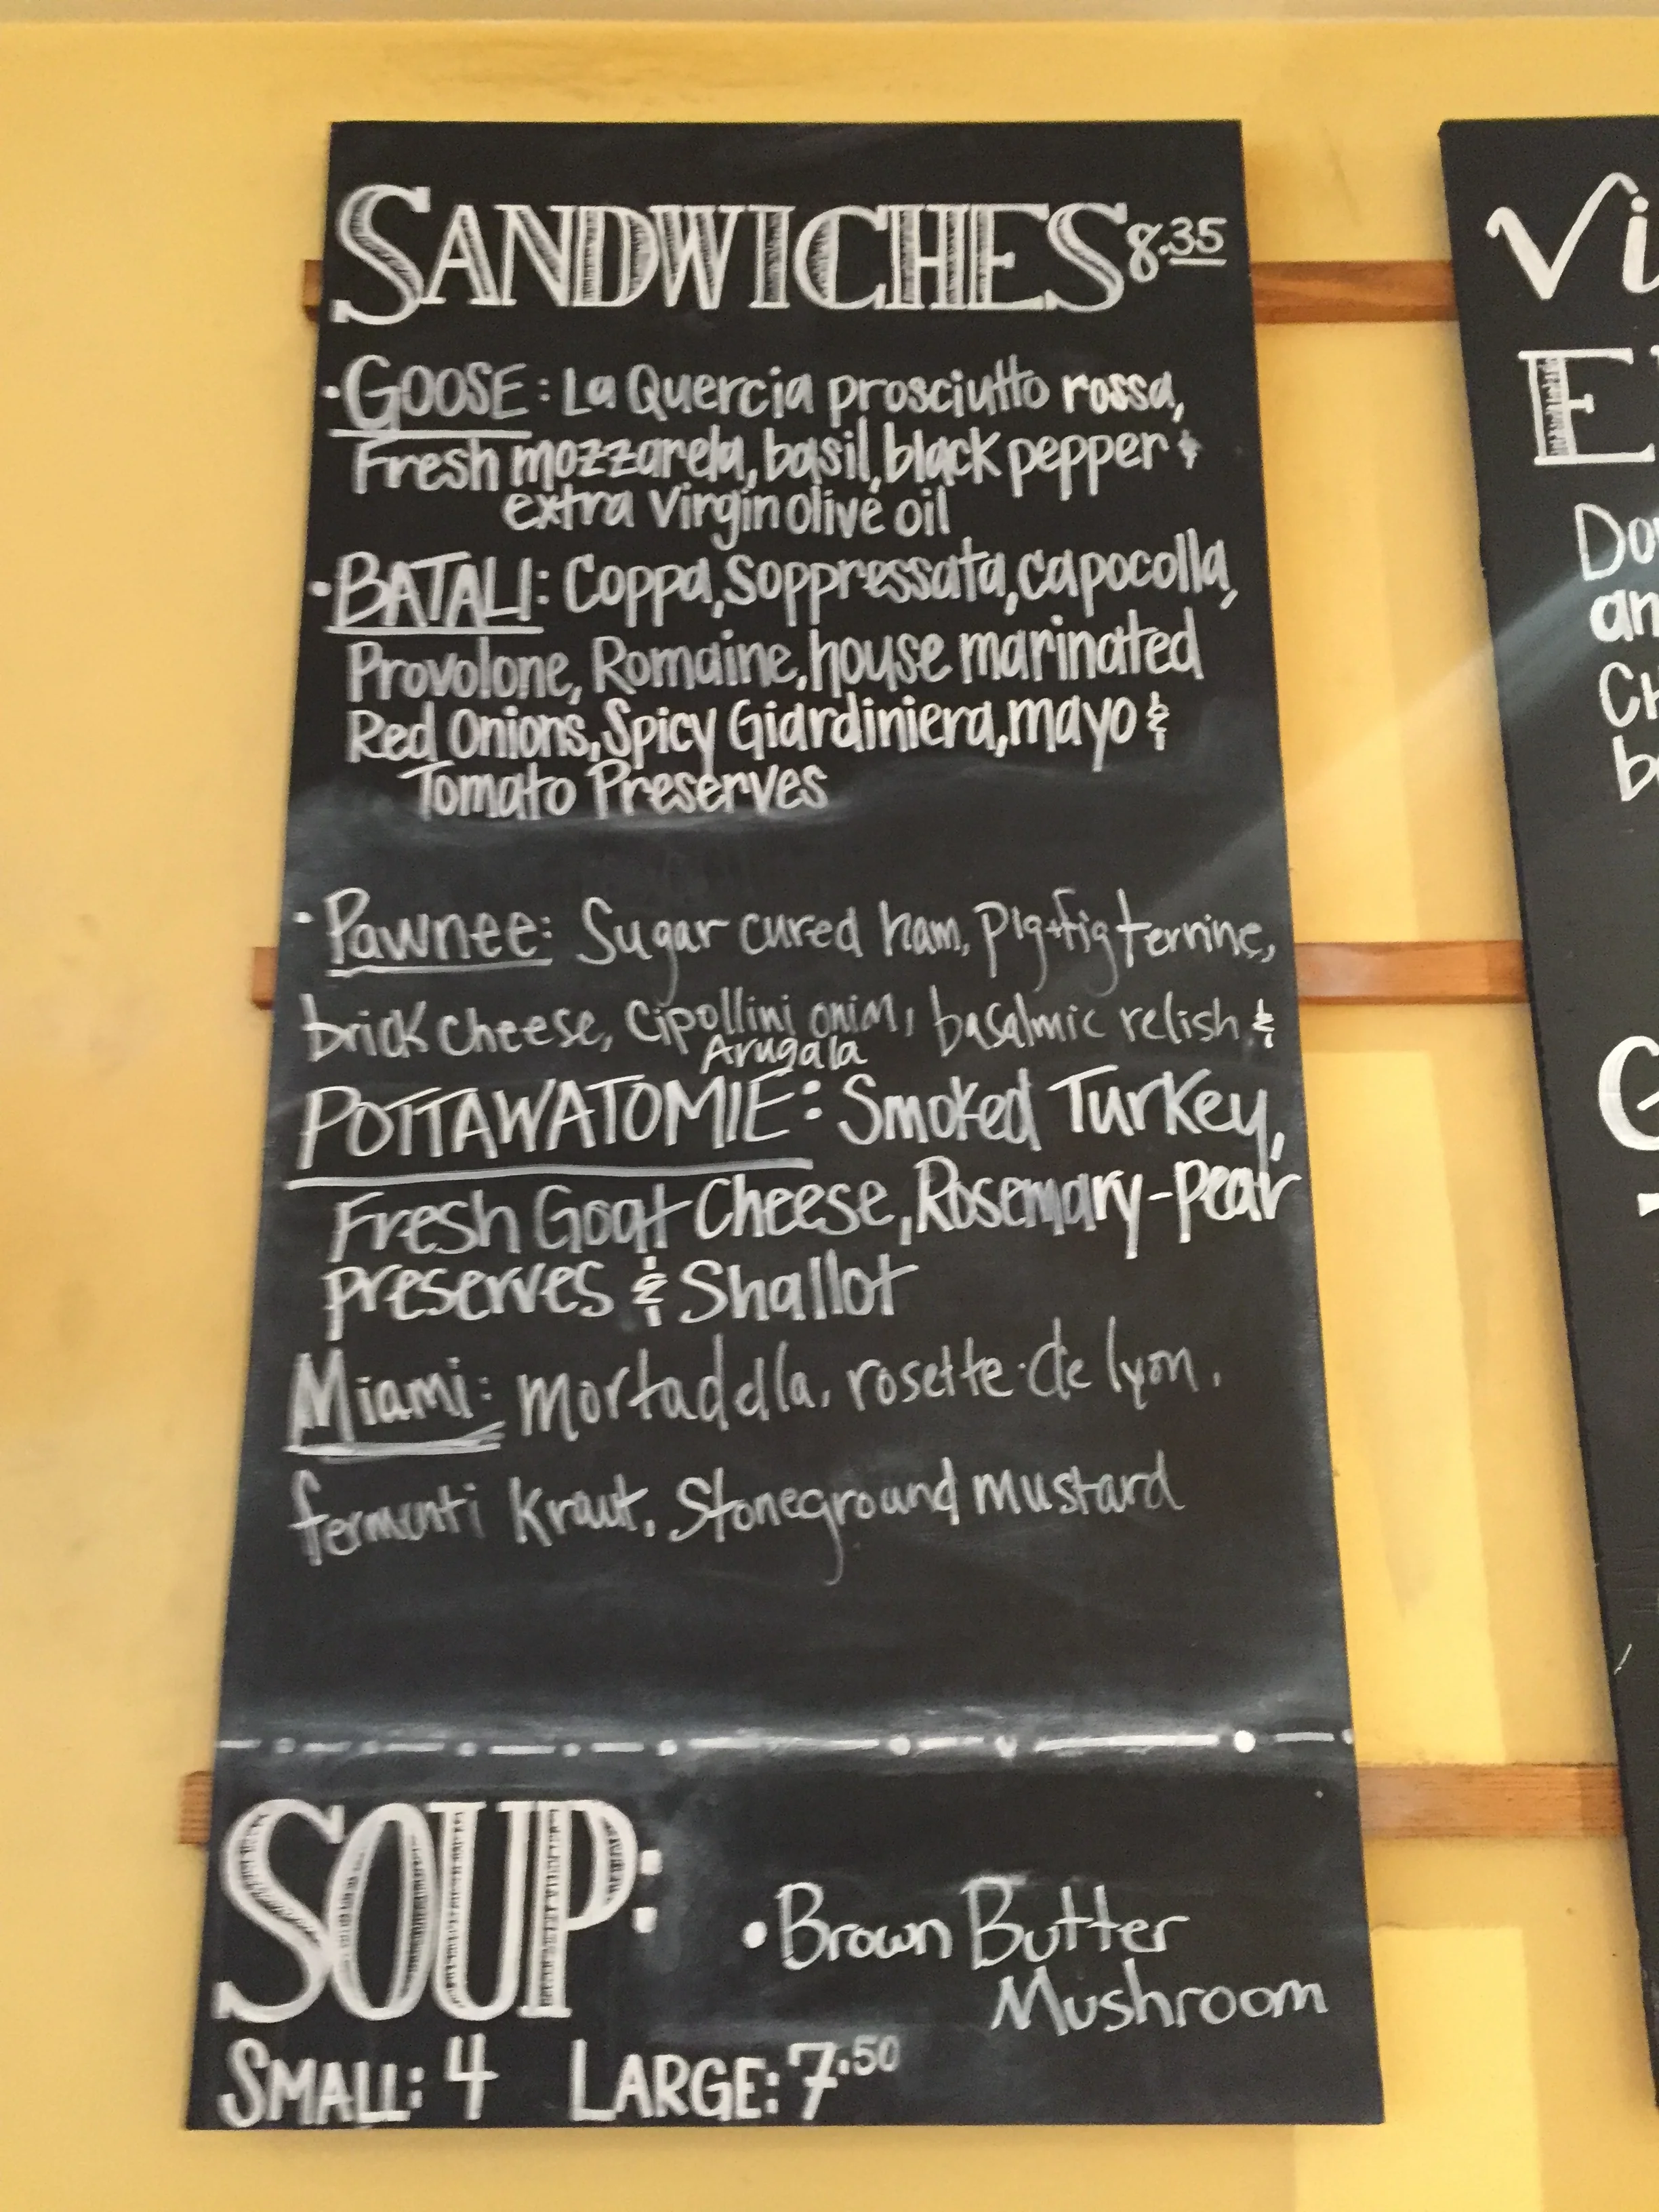 SANDWICHES 8.35
· GOOSE: La Quercia prosciutto rossa,
Fresh mozzarela, basil, black pepper &
extra virgin olive oil
· BATALI: Coppa, Soppressata, capocolla,
Provolone, Romaine, house marinated
Red Onions, Spicy Giardiniera, mayo &
Tomato Preserves
· Pawnee: Sugar cured ham, Pig+fig terrine,
brick cheese, Cipollini onion, basalmic relish &
Arugala
POTTAWATOMIE: Smoked Turkey,
Fresh Goat Cheese, Rosemary-pear
preserves & Shallot
Miami: mortadella, rosette de lyon,
fermenti Kraut, Stoneground mustard
SOUP:
• Brown Butter
Mushroom
SMALL: 4 LARGE: 7.50
Vi
E
Do
an
Ch
b
G